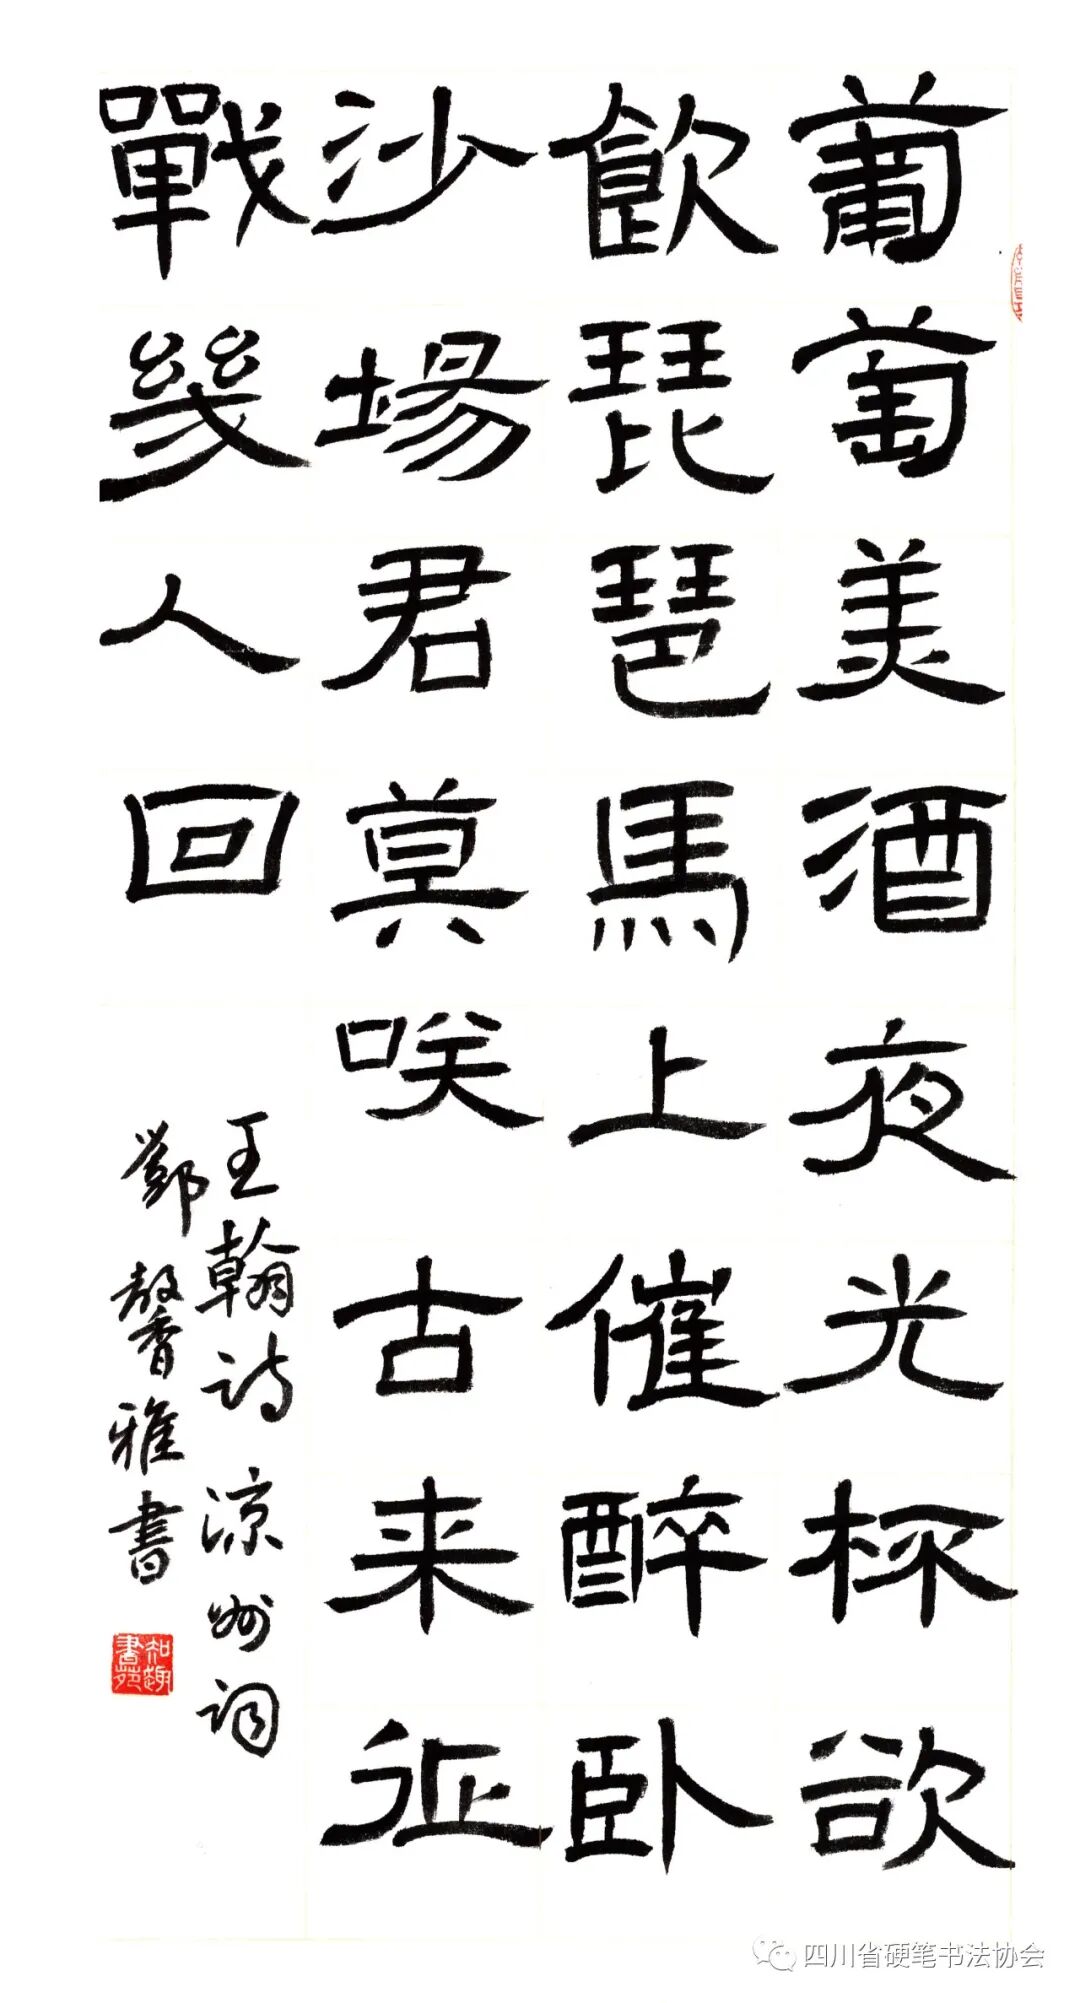 葡萄美酒夜光杯欲
飲琵琶馬上催醉卧
沙場君莫咲古来征
戰幾人回
王翰诗凉州词
鄭馨雅書
知趣書苑
四川省硬笔书法协会